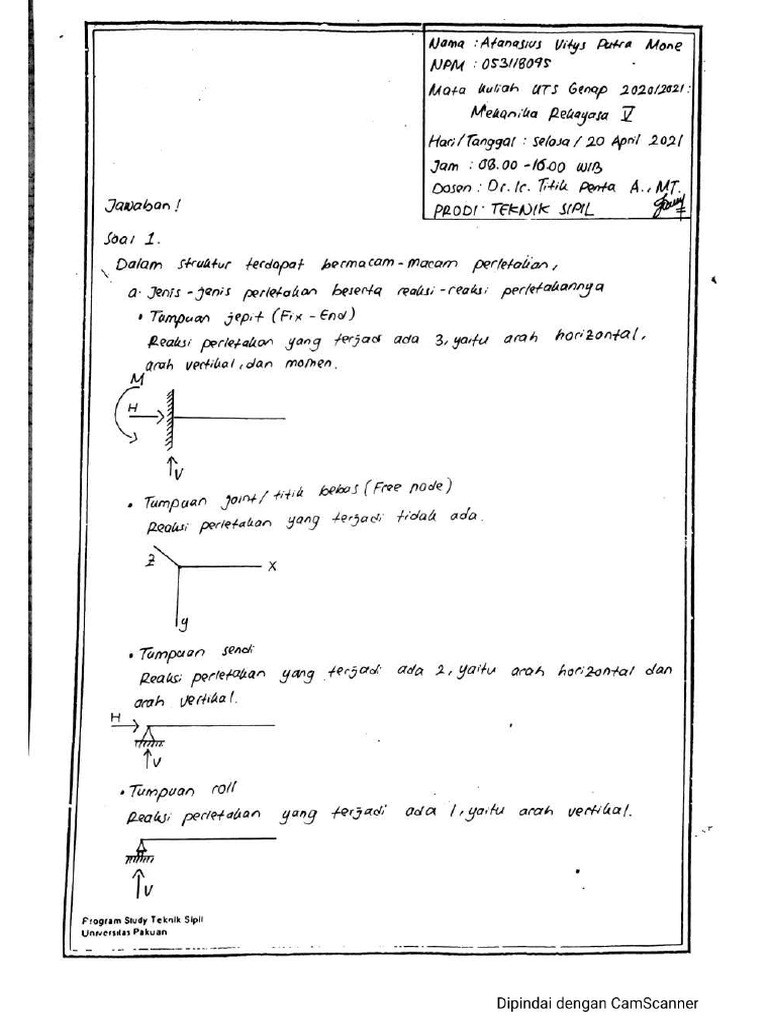 Nama : Atanasius Vitys Putra Mone
NPM : 053118095
Mata Kuliah UTS Genap 2020/2021 :
Mekanika Rekayasa V
Hari/Tanggal : Selasa / 20 April 2021
Jam : 08.00 - 16.00 WIB
Dosen : Dr. Ir. Titik Penta A., MT.
PRODI : TEKNIK SIPIL
Jawaban !
Soal 1.
Dalam struktur terdapat bermacam-macam perletakan,
a. Jenis-jenis perletakan beserta reaksi-reaksi perletakannya
• Tumpuan jepit (Fix-End)
Reaksi perletakan yang terjadi ada 3, yaitu arah horizontal,
arah vertikal, dan momen.
M
H
V
• Tumpuan joint/titik bebas (Free node)
Reaksi perletakan yang terjadi tidak ada.
z
x
y
• Tumpuan sendi
Reaksi perletakan yang terjadi ada 2, yaitu arah horizontal dan
arah vertikal.
H
V
• Tumpuan roll
Reaksi perletakan yang terjadi ada 1, yaitu arah vertikal.
V
Program Study Teknik Sipil
Universitas Pakuan
Dipindai dengan CamScanner